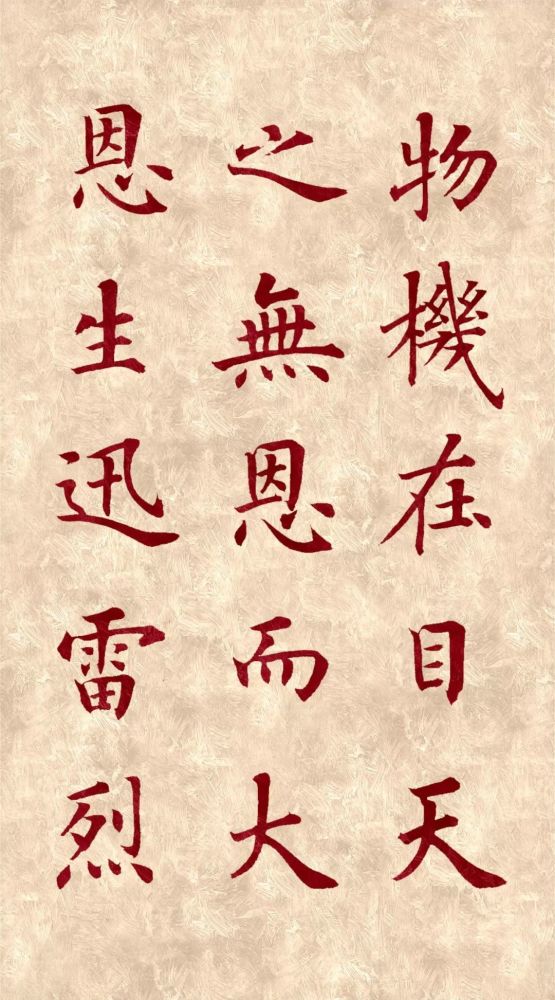 物機在目天
之無恩而大
恩生迅雷烈